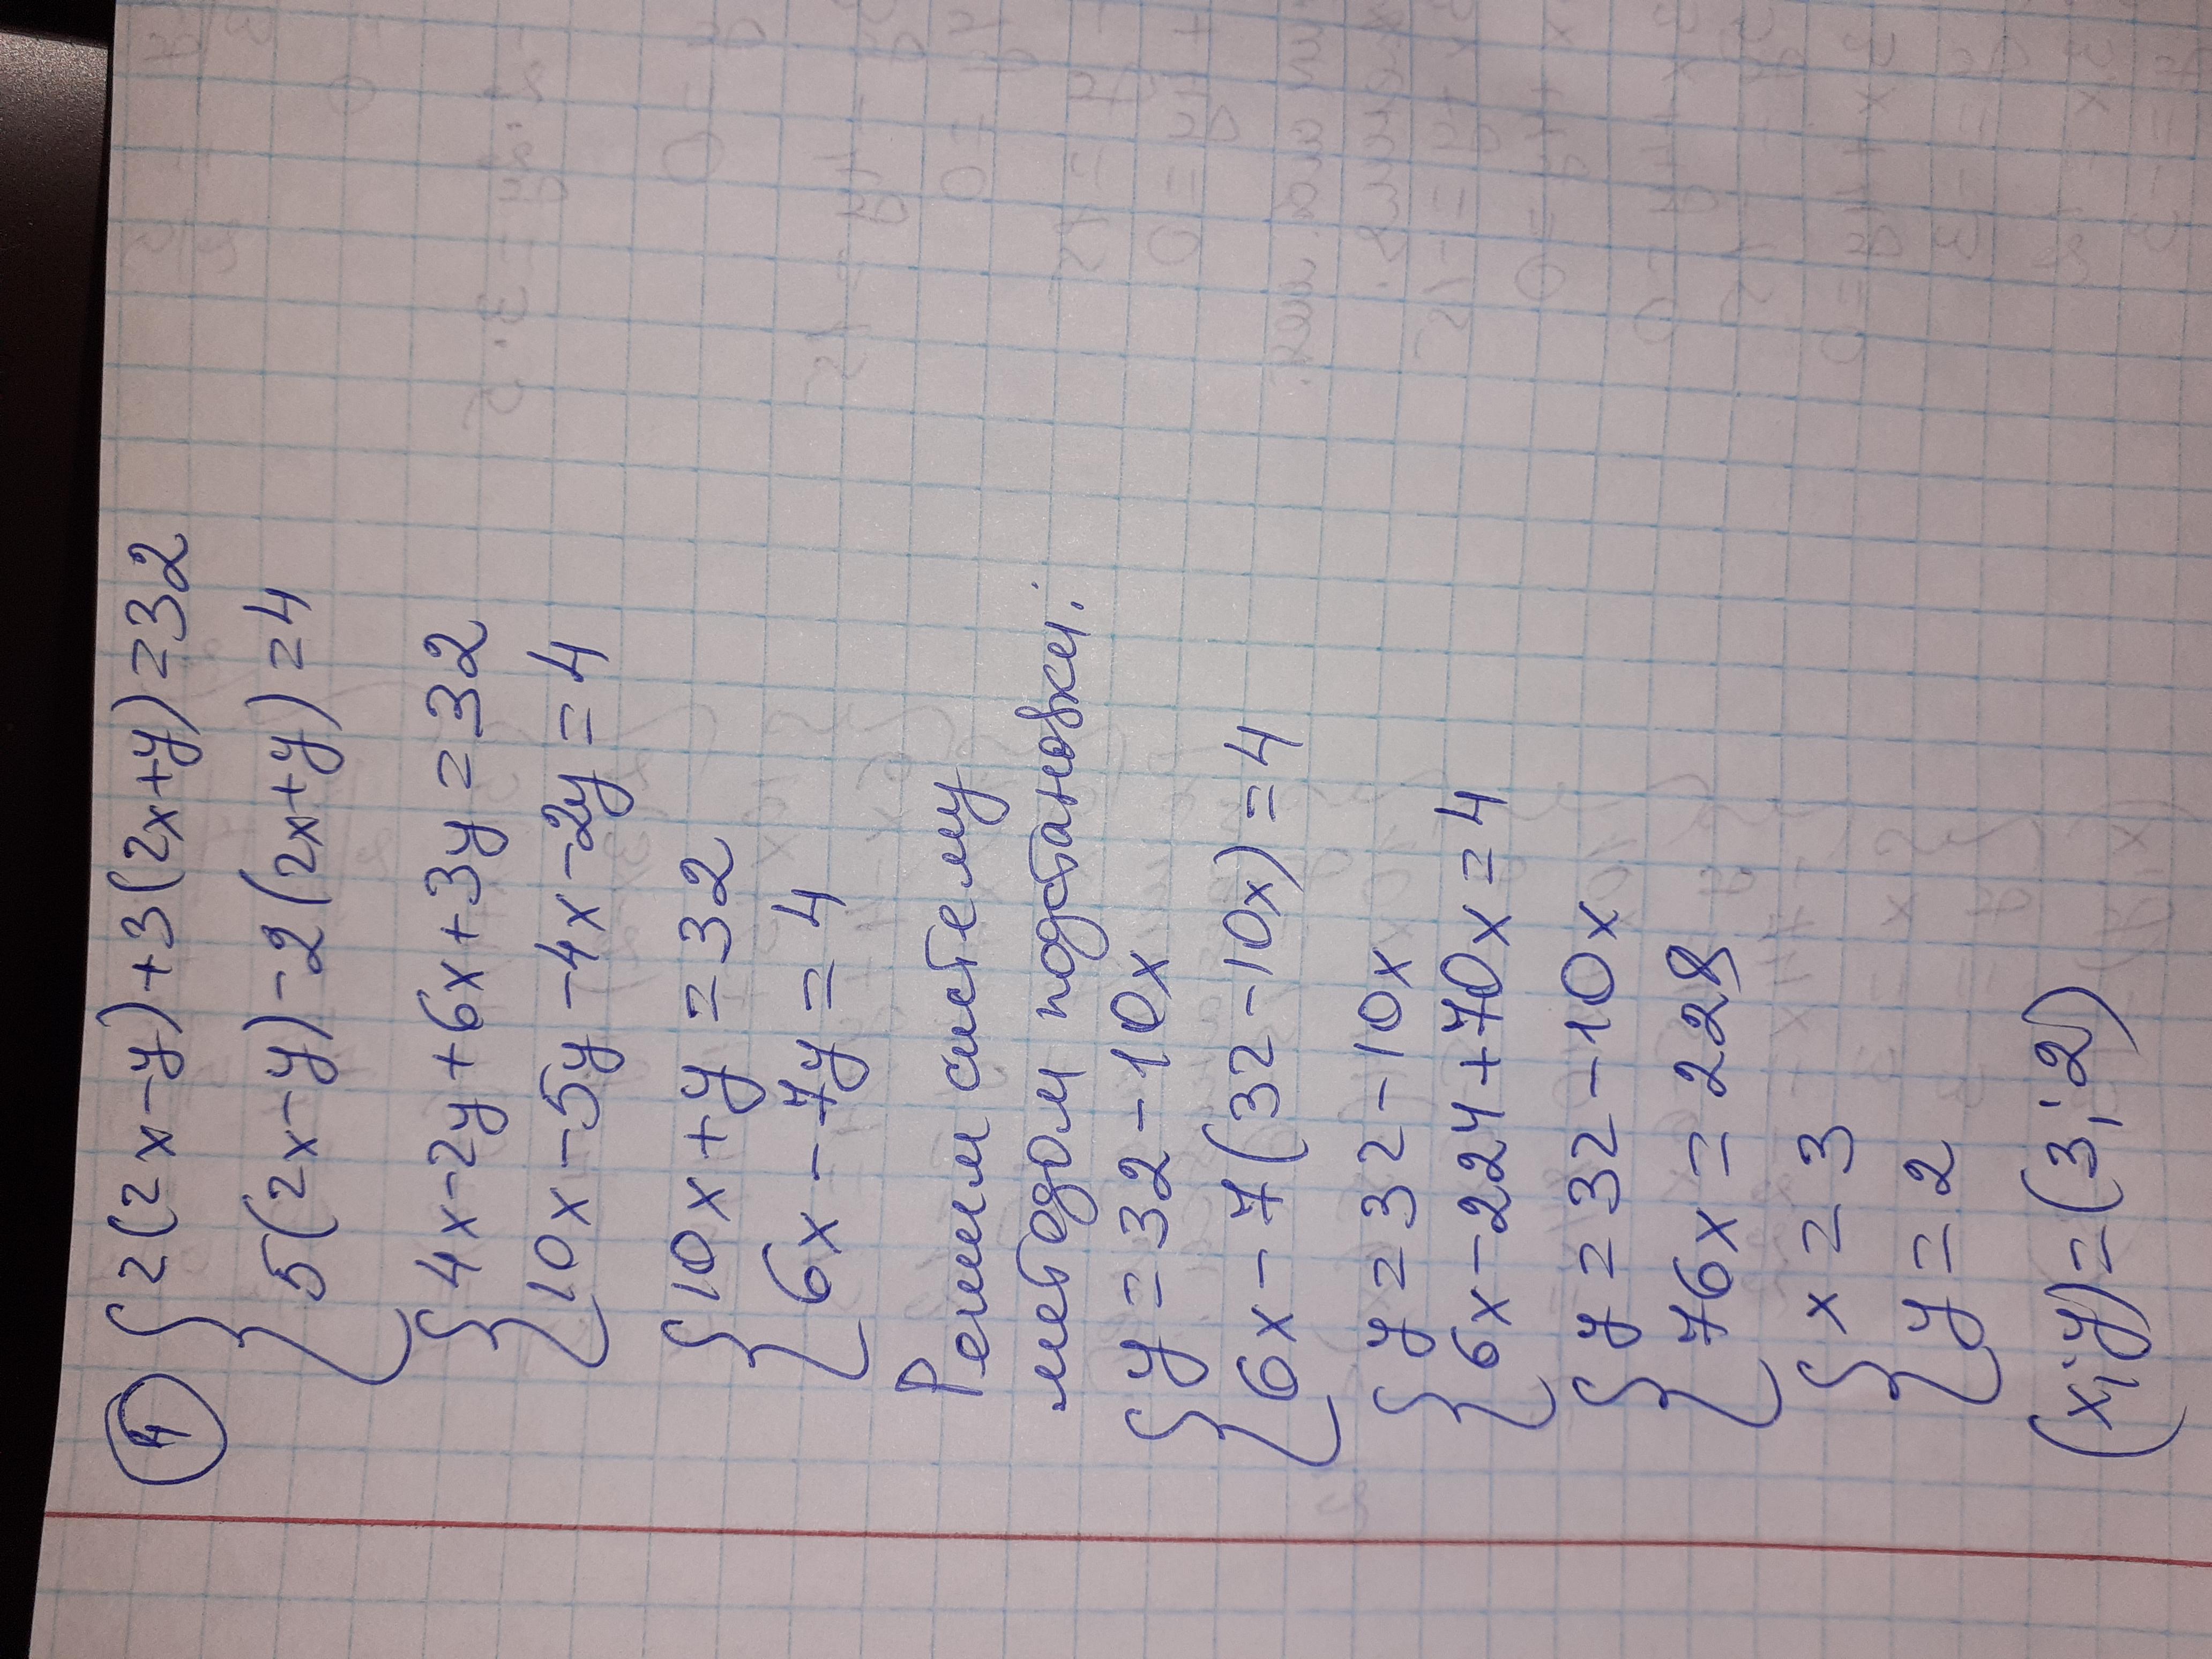 4 { 2(2x-y)+3(2x+y)=32
5(2x-y)-2(2x+y)=4
{ 4x-2y+6x+3y=32
10x-5y-4x-2y=4
{ 10x+y=32
6x-7y=4
Решим систему
методом подстановки:
{ y=32-10x
6x-7(32-10x)=4
{ y=32-10x
6x-224+70x=4
{ y=32-10x
76x=228
{ x=3
y=2
(x;y)=(3;2)